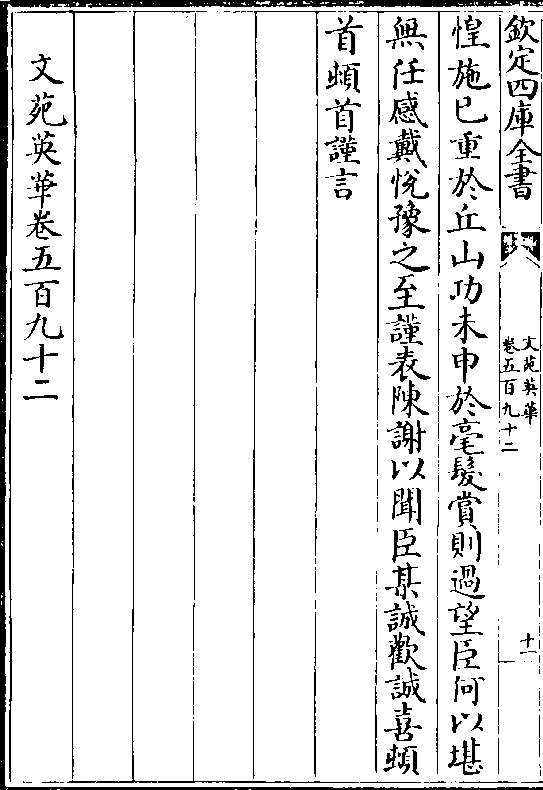 欽定四庫全書
文苑英華
卷五百九十二
十一
惶施已重於丘山功未申於毫髮賞則過望臣何以堪
無任感戴悅豫之至謹表陳謝以聞臣某誠歡誠喜頓
首頓首謹言
文苑英華卷五百九十二